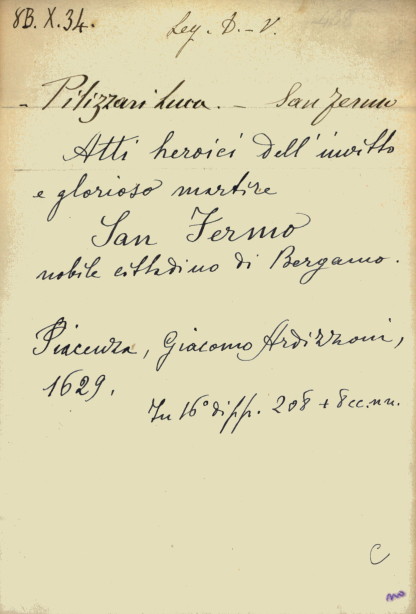 8B. X. 34.
Leg. D.-V.
- Pilizzari Luca. - San Fermo
Atti heroici dell'invitto
e glorioso martire
San Fermo
nobile cittadino di Bergamo.
Piacenza, Giacomo Ardizzoni,
1629.
In 16° di pp. 208 + 8 cc. nn.
C
no